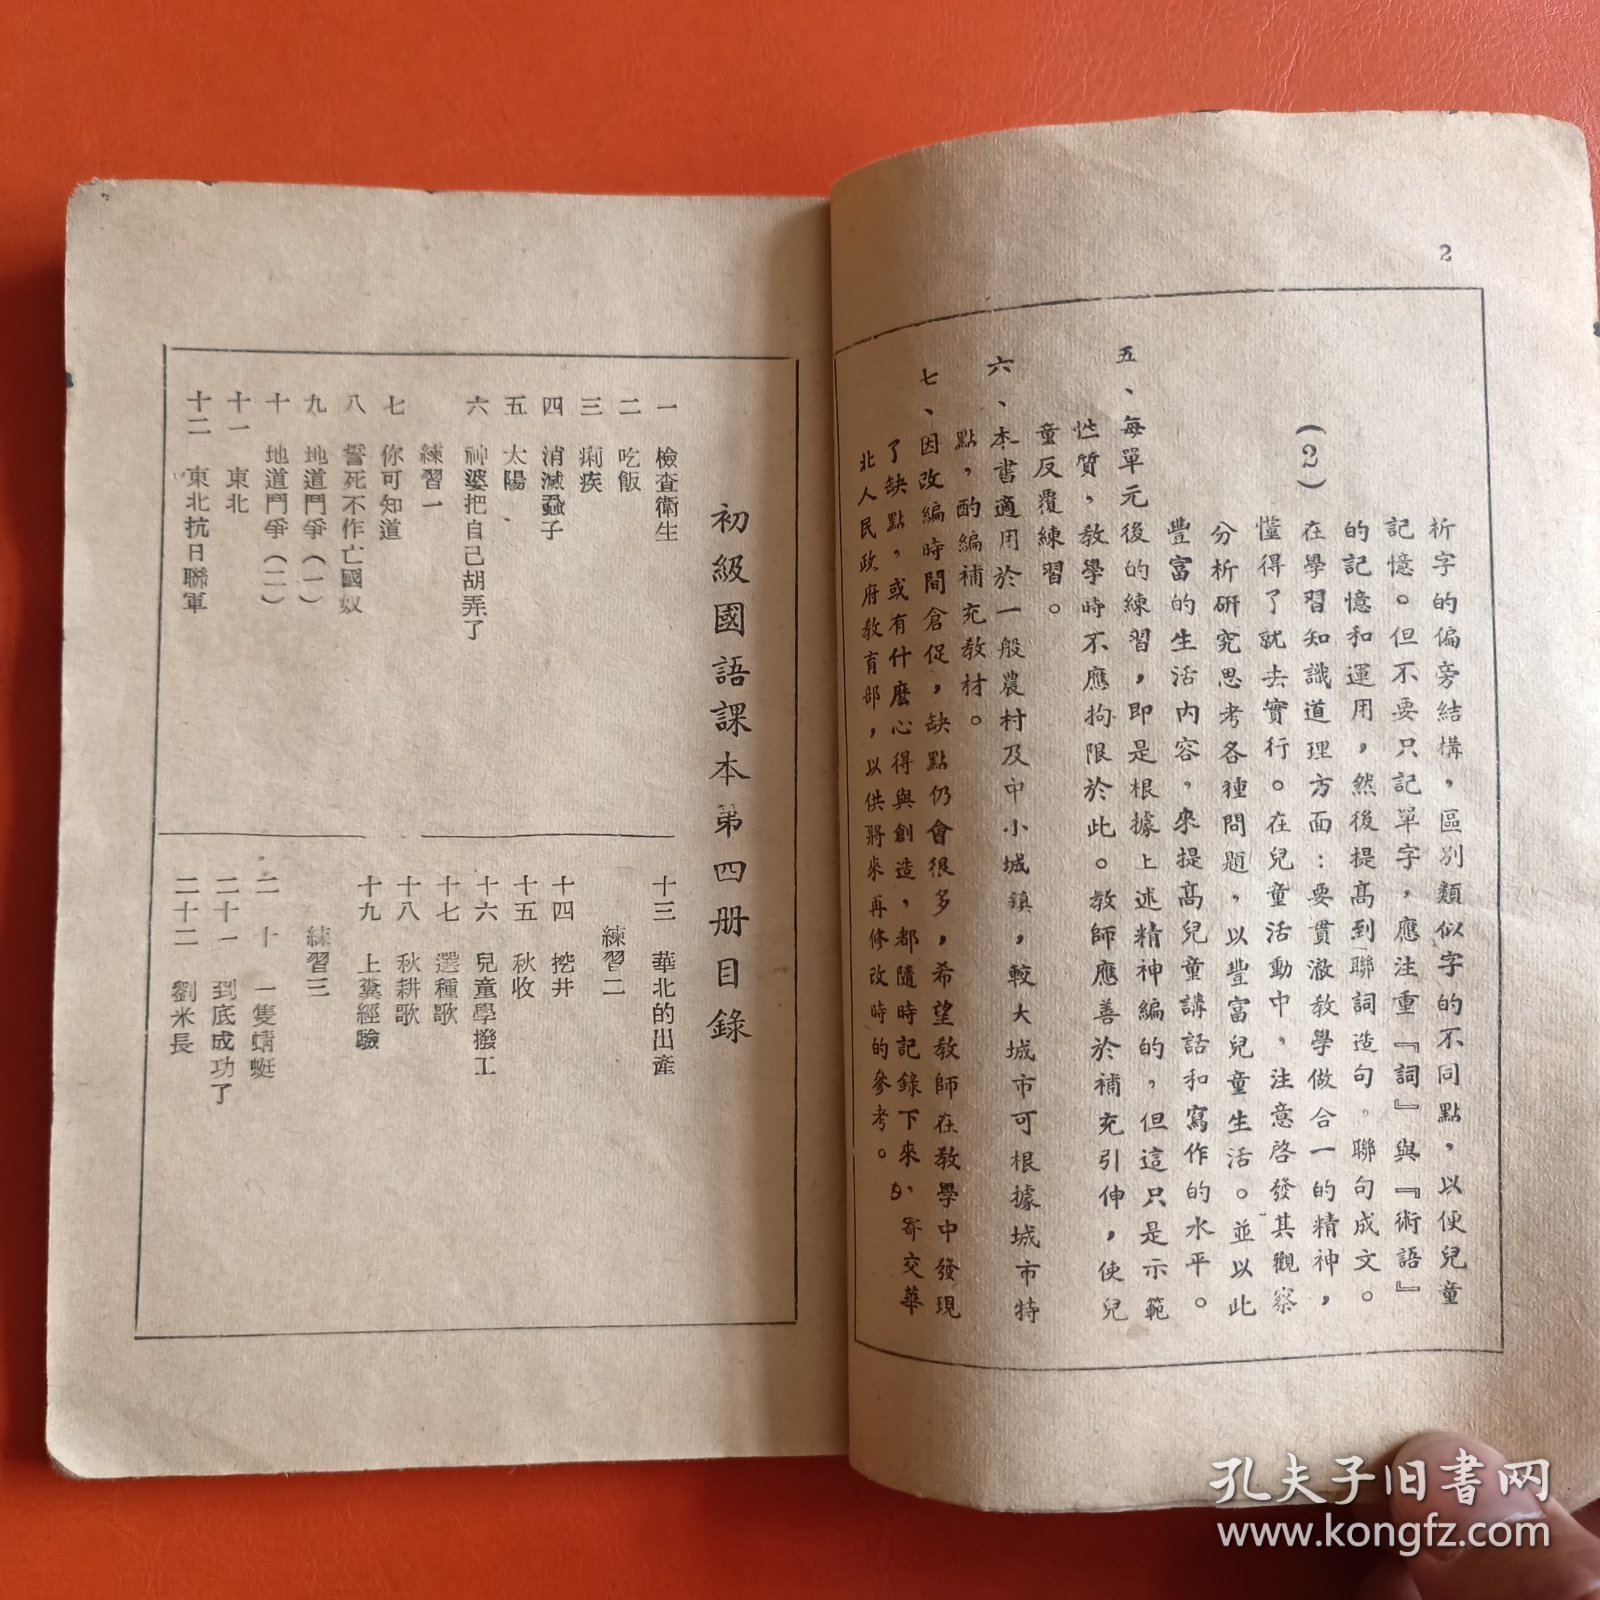 2
析字的偏旁結構，區別類似字的不同點，以便兒童
記憶。但不要只記單字，應注重『詞』與『術語』
的記憶和運用，然後提高到聯詞造句，聯句成文。
(2)
在學習知識道理方面：要貫澈教學做合一的精神，
懂得了就去實行。在兒童活動中，注意啓發其觀察
分析研究思考各種問題，以豐富兒童生活。並以此
豐富的生活內容，來提高兒童講話和寫作的水平。
五、每單元後的練習，即是根據上述精神編的，但這只是示範
性質，教學時不應拘限於此。教師應善於補充引伸，使兒
童反覆練習。
六、本書適用於一般農村及中小城鎮，較大城市可根據城市特
點，酌編補充教材。
七、因改編時間倉促，缺點仍會很多，希望教師在教學中發現
了缺點，或有什麼心得與創造，都隨時記錄下來，寄交華
北人民政府教育部，以供將來再修改時的參考。
初級國語課本第四册目錄
一 檢查衛生
二 吃飯
三 痢疾
四 消滅蝨子
五 太陽
六 神婆把自己胡弄了
練習一
七 你可知道
八 誓死不作亡國奴
九 地道鬥爭（一）
十 地道鬥爭（二）
十一 東北
十二 東北抗日聯軍
十三 華北的出產
練習二
十四 挖井
十五 秋收
十六 兒童學撥工
十七 選種歌
十八 秋耕歌
十九 上糞經驗
練習三
二十 一隻蜻蜓
二十一 到底成功了
二十二 劉米長
孔夫子旧书网
www.kongfz.com